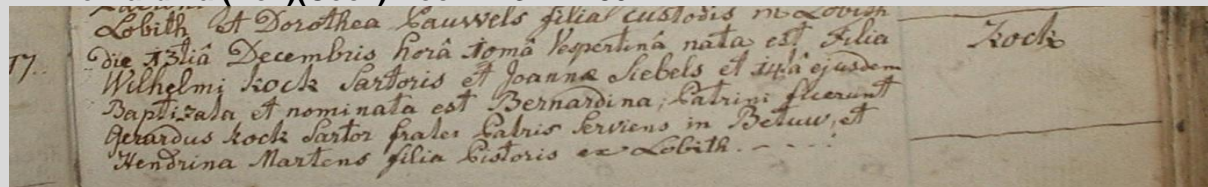 Lobith et Dorothea Pauwels filia custodis in Lobith
17. die 13tiâ Decembris horâ 10mâ Vespertinâ nata est Filia Kock
Wilhelmi Kock Sartoris et Joannæ Siebels et 14tâ ejusdem
Baptizata et nominata est Bernardina, Patrini fuerunt
Gerardus Kock Sartor frater Patris Serviens in Betuw, et
Hendrina Martens filia Pistoris ex Lobith.